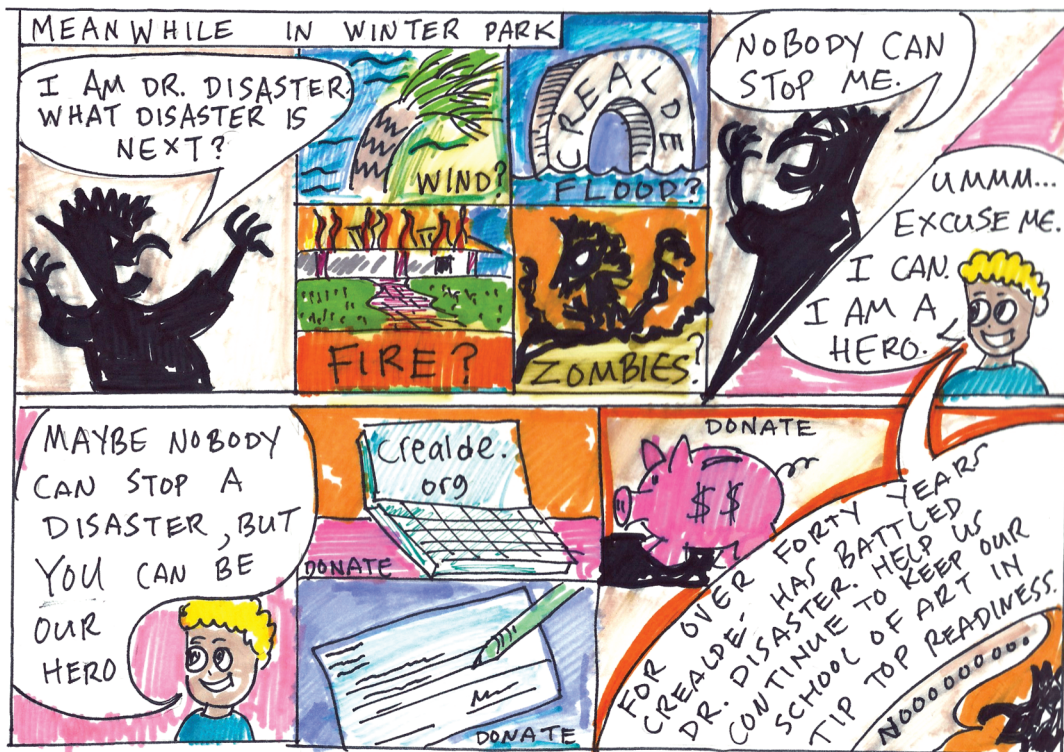 MEANWHILE IN WINTER PARK
I AM DR. DISASTER.
WHAT DISASTER IS
NEXT?
WIND?
CREALDE
FLOOD?
FIRE?
ZOMBIES?
NOBODY CAN
STOP ME.
UMMM...
EXCUSE ME.
I CAN.
I AM A
HERO.
MAYBE NOBODY
CAN STOP A
DISASTER, BUT
YOU CAN BE
OUR
HERO
crealde.
org
DONATE
DONATE
$$
DONATE
FOR OVER FORTY YEARS
CREALDE- HAS BATTLED
DR. DISASTER. HELP US
CONTINUE TO KEEP OUR
SCHOOL OF ART IN
TIP TOP READINESS.
NOOOOOOO...